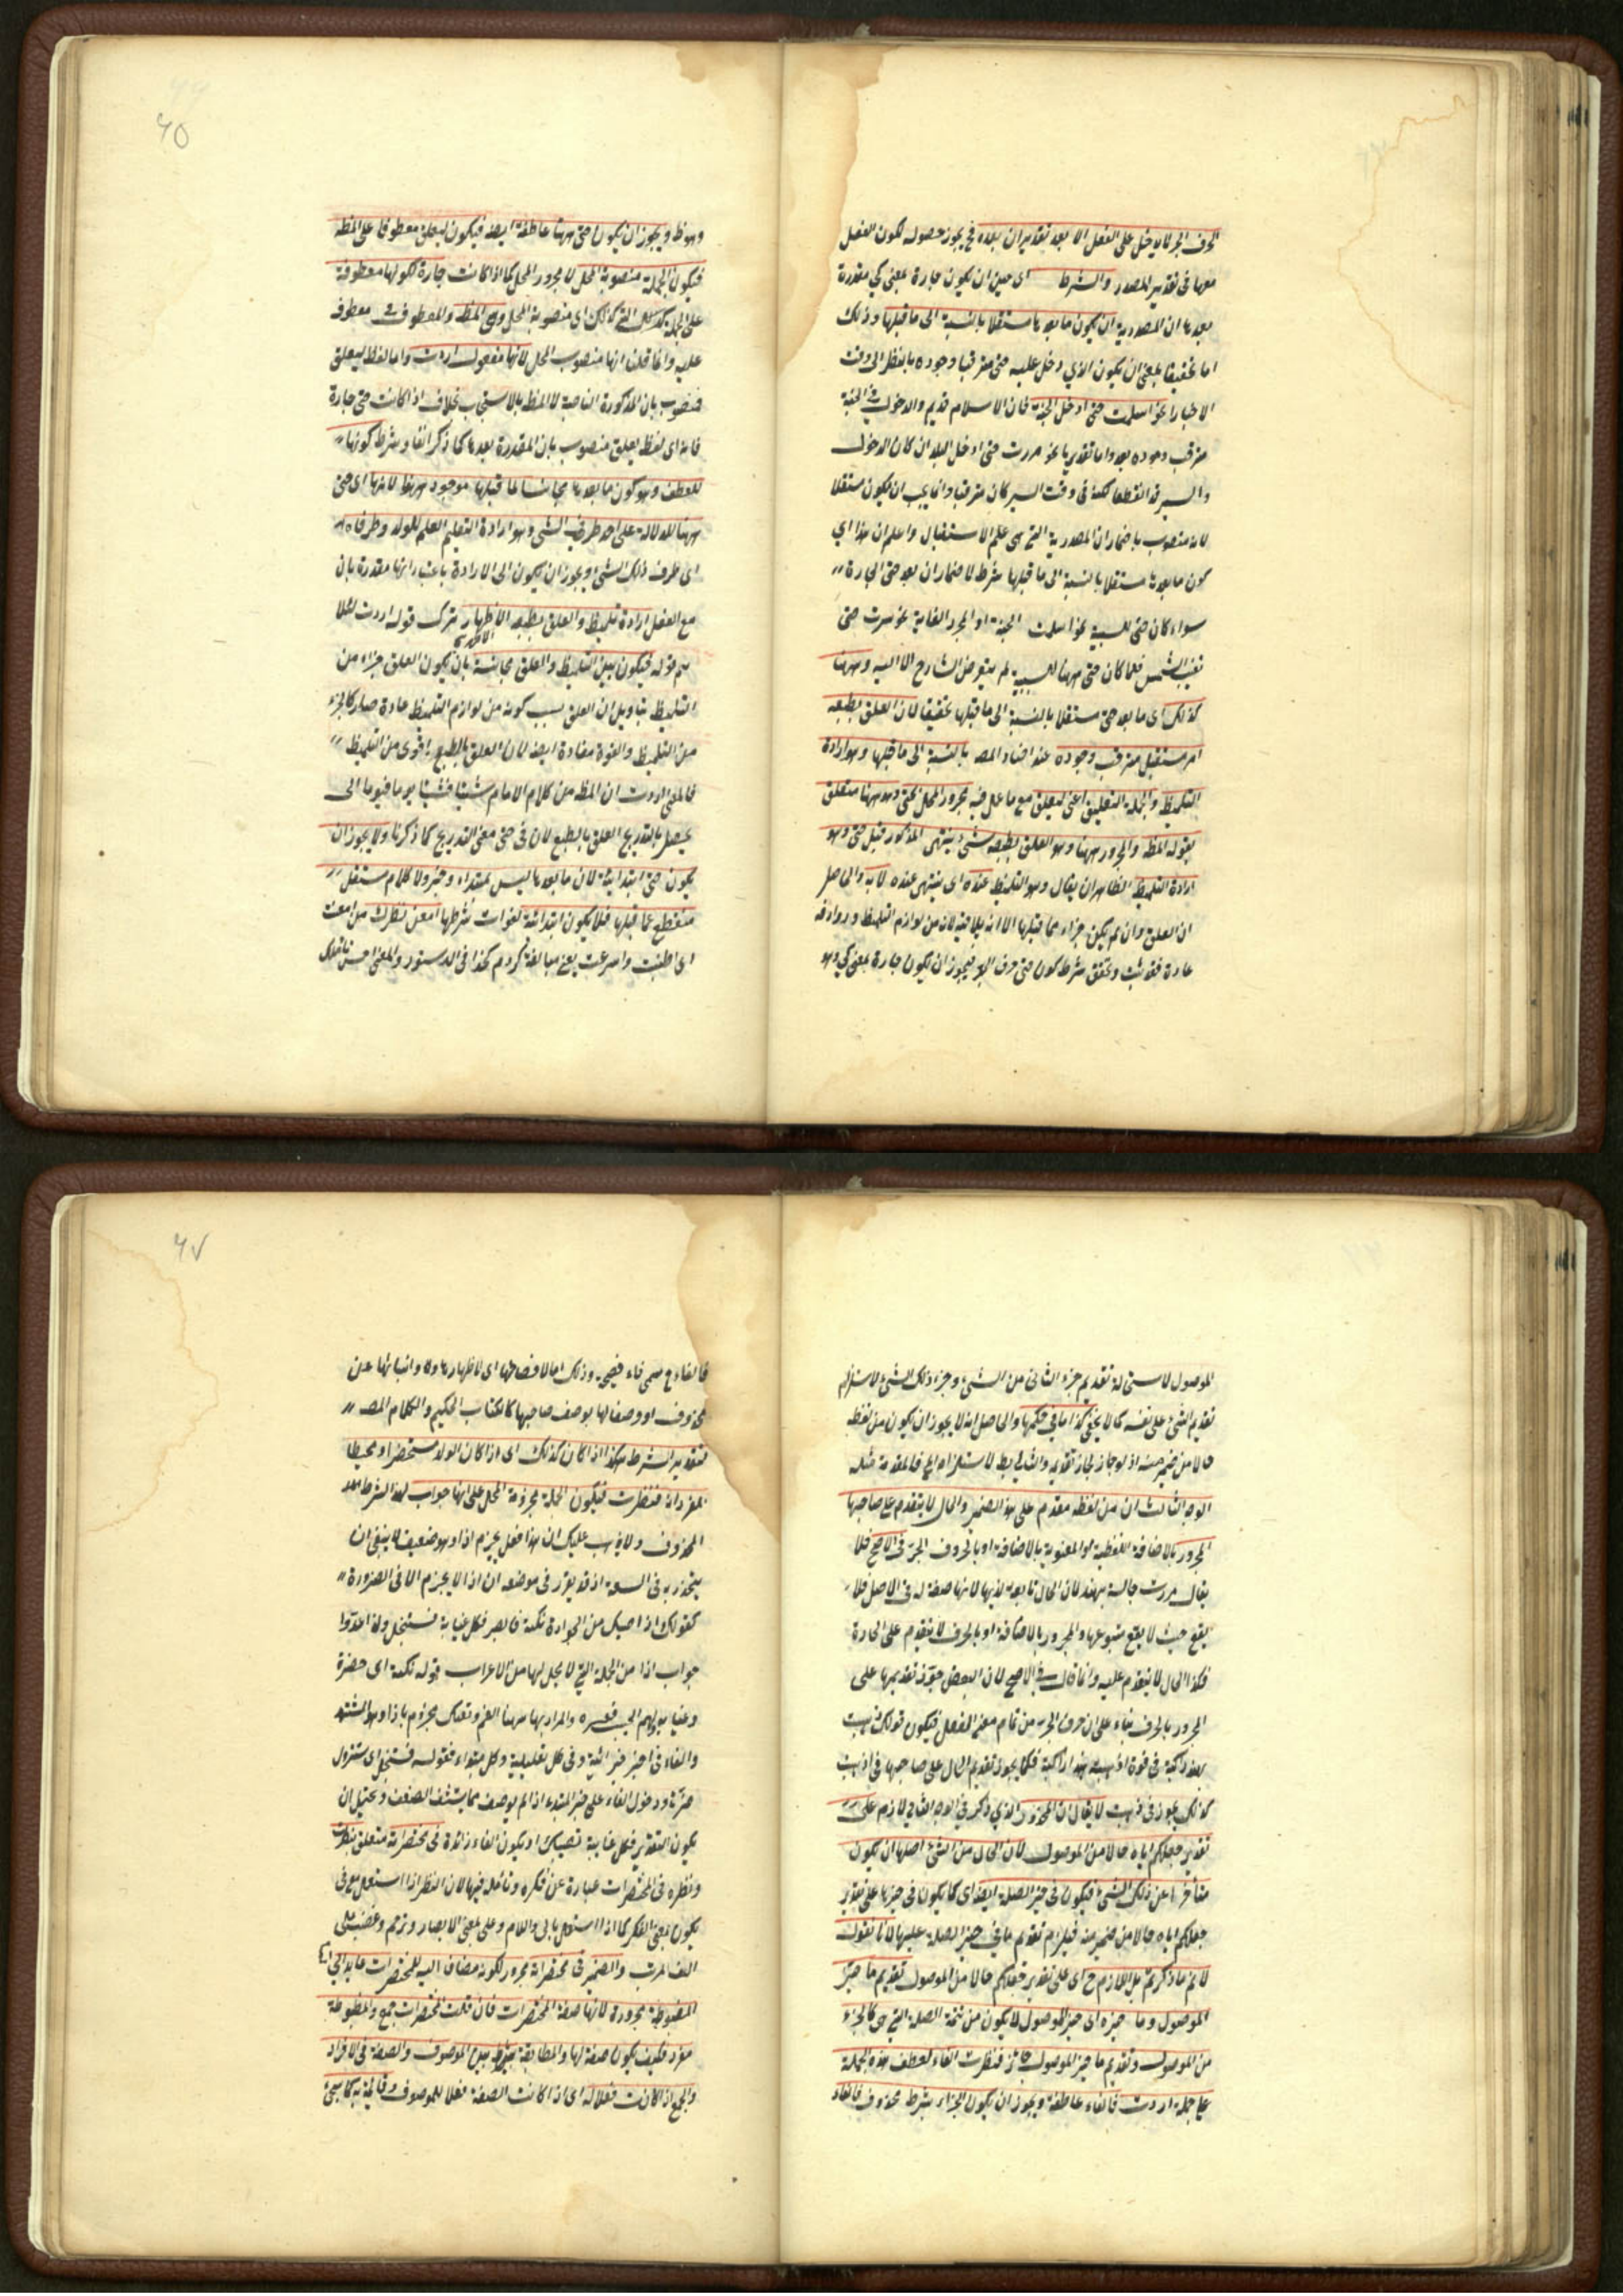 الحرف الجر لا يدخل على الفعل الا بعد تقدير ان بعده فح يجوز حصوله لكون الفعل
معها فى تقدير المصدر والشرط اى حين ان يكون جارة بمعنى كي مقدرة
بعدها ان المصدرية ان يكون ما بعدها مستقلا بالنسبة الى ما قبلها وذلك
اما تحقيقا بمعنى ان يكون الذي دخل عليه حتى مترقبا وجوده بالنظر الى وقت
الاخبار نحو اسلمت حتى ادخل الجنة فان الاسلام قديم والدخول فى الجنة
مترقب وجوده بعد واما تقديرا نحو سرت حتى ادخل البلد ان كان الدخول
والسير قد انقطعا لكنه فى وقت السير كان مترقبا وانما يجب ان يكون مستقلا
لانه منصوب باضمار ان المصدرية التي هى علم الاستقبال واعلم ان هذا اي
كون ما بعدها مستقلا بالنسبة الى ما قبلها شرط لاضمار ان بعد حتى الجارة
سواء كان حتى للسببية نحو اسلمت الجنة او لمجرد الغاية نحو سرت حتى
تغيب الشمس فلما كان حتى ههنا للسببية لم يتعرض الشارح الا اليه وههنا
كذلك اى ما بعد حتى مستقلا بالنسبة الى ما قبلها تحقيقا لان العلق بطبعه
امر مستقبل مترقب وجوده عند اخبار المصـ بالنسبة الى ما قبلها وهو ارادة
التلميظ والجملة التعليق اعنى ليعلق مع ما عمل فيه مجرور المحل بحتى وهو ههنا متعلق
بقوله المظـ والمجرور ههنا وهو العلق بطبعه شئ ينتهى المذكور قبل حتى وهو
ارادة التلميظ الظاهر ان يقال وهو التلميظ عنده اى ينتهى عنده لا به والحاصل
ان العلق وان لم يكن جزاء مما قبلها الا انه يلاقيه لانه من لوازم التلميظ وروادفه
عادة فتحقق شرط كون حتى حرف الجر فيجوز ان يكون جارة بمعنى كي وهو
وهو ظ ويجوز ان يكون حتى ههنا عاطفة ايضا فيكون ليعلق معطوفا على المظـ
فيكون الجملة منصوبة المحل لا مجرور المحل كما اذا كانت جارة لكونها معطوفة
على الجملة التي كذلك اى منصوبة المحل وهى المظـ والمعطوف فى معطوف
عليه وانما قلنا انها منصوب المحل لانها مفعول اردت واما لفظ ليعلق
فمنصوب بان المذكورة الناصبة لا لمظـ بالاستحاب بخلاف اذا كانت حتى جارة
فانه اى لفظ يعلق منصوب بان المقدرة بعدها كما ذكر انفا وشرط كونها
للعطف وهو كون ما بعدها مجانسا لما قبلها موجود ههنا لانها اى حتى
ههنا للدلالة على احد طرفى الشئ وهو ارادة التعليم العلم للولد وطرفاه
اى طرف ذلك الشئ ويجوز ان يكون الى الارادة باعتبار انها مقدرة بان
مع الفعل ارادة تلميظ والعلق بطبعه الاظهار بترك قوله اردت لئلا
قوله فيكون بين التلميظ والعلق مجانسة بان يكون العلق جزاء من
التلميظ بتاويل ان العلق بسبب كونه من لوازم التلميظ عادة صار كالجزء
من التلميظ والقوة مفادة ايضا لان العلق بالطبع اقوى من التلميظ
فالمعنى اردت ان المظـ من كلام الامام شيئا فشيئا يوما فيوما الى
يحصل بالتدريج العلق بالطبع لان فى حتى معنى التدريج كما ذكرنا ولا يجوز ان
يكون حتى ابتدائية لان ما بعدها ليس لمبتداء وخبر ولا كلام مستقل
منقطع عما قبلها فلا يكون ابتدائية لفوات شرطها امعن نظرك من امعنت
اى اطلت واسرعت يعنى مبالغه كردم كذا فى الدستور والمعنى احسن تاملك
الموصول لاستحالة تقديم جزء الثانى من الشئ وجزء ذلك الشئ لاستلزام
تقديم الشئ على نفسه كما لا يخفى كذا ما فى حكمها والحاصل انه لا يجوز ان يكون من لفظه
حالا من ضمير منه اذ لو جاز لجاز تقديم والتالى بط لاستلزامه الخ فالمقدمة مثله
الوجه الثالث ان من لفظه مقدم على هذا الضمير والحال لا يتقدم على صاحبها
المجرور بالاضافة اللفظية او المعنوية بالاضافة او بالحروف الجر فى الاصح فلا
يقال مررت جالسة بهند لان الحال تابعة لذيها لانها صفة له فى الاصل فلا
يقع حيث لا يقع متبوعها والمجرور بالاضافة او بالحرف لا يتقدم على الجارة
فكذا الحال لا يتقدم عليه وانما قال فى الاصح لان البعض جوّز تقديمها على
المجرور بالحرف بناء على ان حرف الجر من تمام معنى الفعل فيكون قولك ذهبت
بهند راكبة فى قوة اذهبت هند راكبة فكما يجوز تقديم الحال على صاحبها فى اذهبت
كذلك يجوز فى ذهبت لا يقال ان المحذور الذي ذكر فى الوجه الثانى لازم على
تقدير جعلكم اياه حالا من الموصول لان الحال من الشئ اصلها ان يكون
متأخرا عن ذلك الشئ فيكون فى حيز الصلة ايضا اى كما يكون فى حيزها على تقدير
جعلكم اياه حالا من ضمير منه فيلزم تقديم ما فى حيز الصلة عليها لانا نقول
لا نم ما ذكرتم بل اللازم ح اى على تقدير جعلكم حالا من الموصول تقديم ما حيز
الموصول وما حيزه اى حيز الموصول لا يكون من تتمة الصلة التي هى كالجزء
من الموصول وتقديم ما حيز الموصول جائز فنظرت الفاء لعطف هذه الجملة
على جملة اردت فالفاء عاطفة ويجوز ان يكون الجزاء بشرط محذوف فالفاء
فالفاء ح يسمى فاء فصيحه وذلك اما لافصاحها اى لاظهارها وانبائها عن
محذوف او وصفا لها بوصف صاحبها كالكتاب الحكيم والكلام المصـ
فتقدير الشرط هكذا اذا كان كذلك اى اذا كان الولد مستحضرا ومحيطا
لمفرداته فنظرت فيكون الجملة مجزومة المحل على انها جواب لهذا الشرط
المحذوف ولا يذهب عليك ان هذا فعل يجزم اذا وهو ضعيف لا ينبغى ان
يتحذر به فى السعة اذ قد يقرر فى موضعه ان اذا لا يجزم الا فى الضرورة
كقولك واذا اصبك من الحوادث نكبة فاصبر فكل غيابة فستنجلى ولذا عدّوا
جواب اذا من الجملة التي لا محل لها من الاعراب قوله نكبة اى حضرة
والمراد بها ههنا الغم وتصبك مجزوم باذا وهو المشهد
والفاء فى اصبر جزائية وفى كل تعليلية وكل مبتداء فقوله فستنجلى اى ستزول
خبره ودخول الفاء على خبر المبتدء اذا لم يوصف مما يستشف الضعف ويحتمل ان
يكون التقدير فكل غيابة تصيبك او يكون الفاء زائدة فى مختصراته متعلق بنظرت
ونظره فى المختصرات عبارة عن فكره وتأمله فيها لان النظر اذا استعمل مع فى
يكون بمعنى الفكر كما اذا استعمل بالى واللام وعلى بمعنى الابصار وترحم وغضب على
اللف المرتب والضمير فى مختصراته مجرور لكونه مضاف اليه للمختصرات عايد الى
المضبوطة مجرورة لانها صفة المختصرات فان قلت المختصرات جمع والمضبوطة
مفرد فكيف يكون صفة لها والمطابقة شرط بين الموصوف والصفة فى الافراد
والجمع اذا كانت فعلا له اى اذا كانت الصفة فعلا للموصوف وقائمة به كما سيجئ